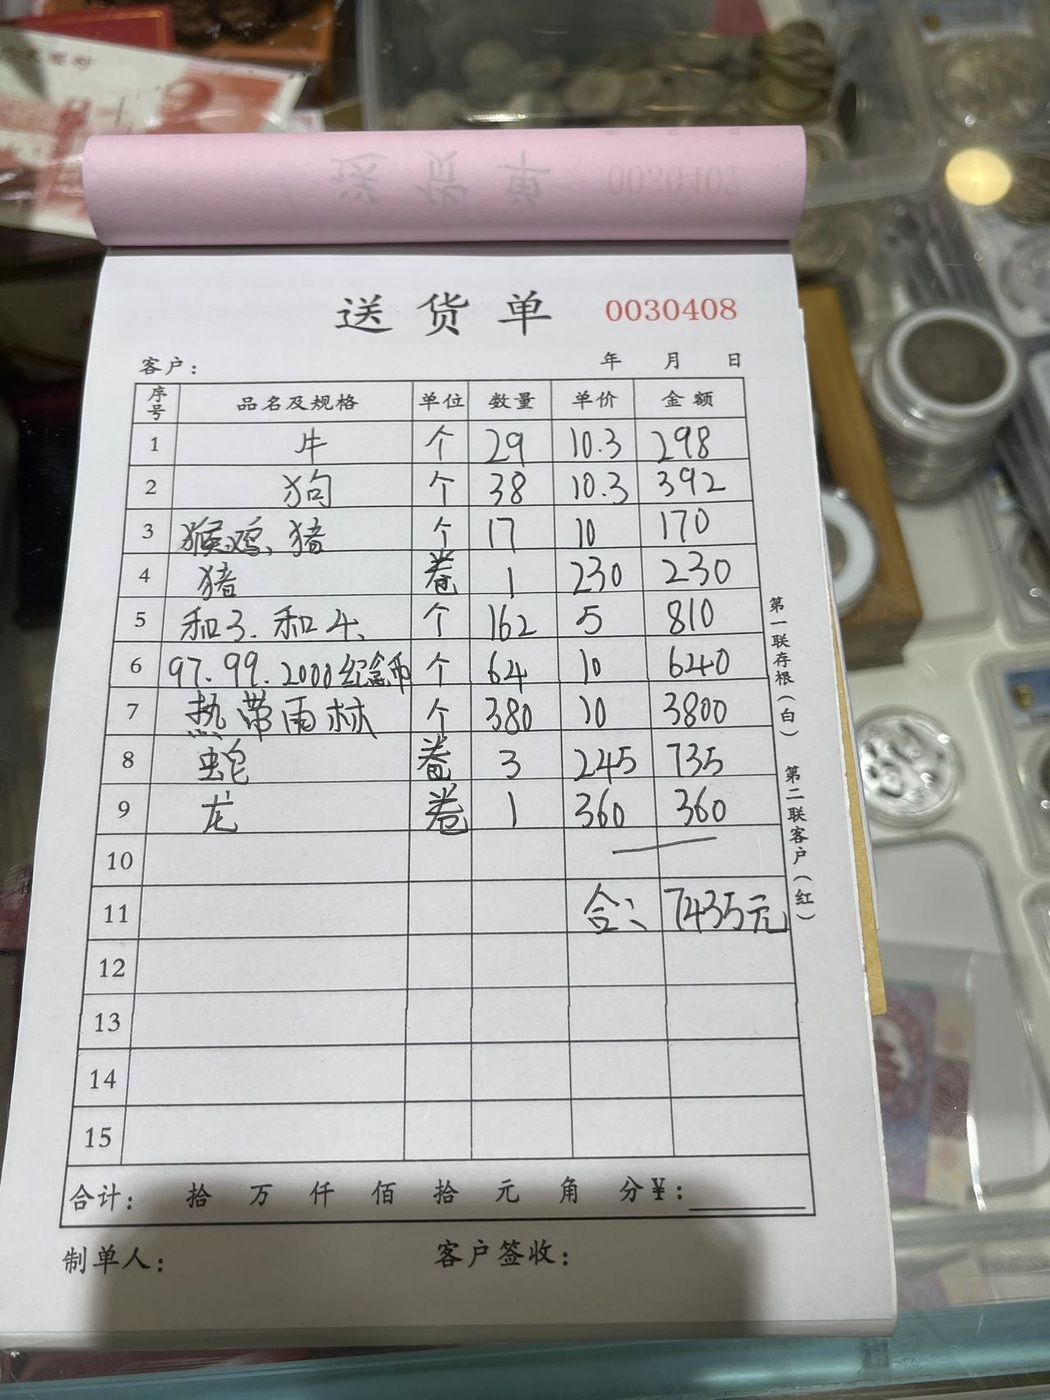 送货单 0030408
客户： 年 月 日
序号 品名及规格 单位 数量 单价 金额
1 牛 个 29 10.3 298
2 狗 个 38 10.3 392
3 猴、鸡、猪 个 17 10 170
4 猪 卷 1 230 230
5 和3、和4、 个 162 5 810
6 97.99.2000纪念币 个 64 10 640
7 热带雨林 个 380 10 3800
8 蛇 卷 3 245 735
9 龙 卷 1 360 360
10
11 合： 7435元
12
13
14
15
合计： 拾 万 仟 佰 拾 元 角 分 ¥：
制单人： 客户签收：
第一联存根（白） 第二联客户（红）